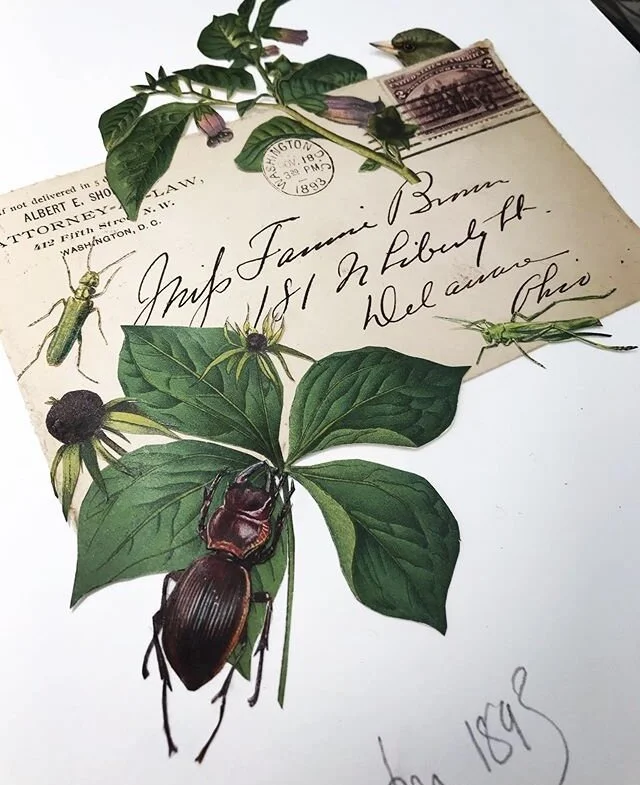 If not delivered in 5
ALBERT E. SHO
ATTORNEY-AT-LAW,
412 Fifth Street, N. W.
WASHINGTON, D. C.
WASHINGTON, D.C.
NOV. 18
3 30 PM
1893
UNITED STATES OF AMERICA
2 2
Miss Fannie Brown
181 N Liberty St.
Delaware
Ohio
1893